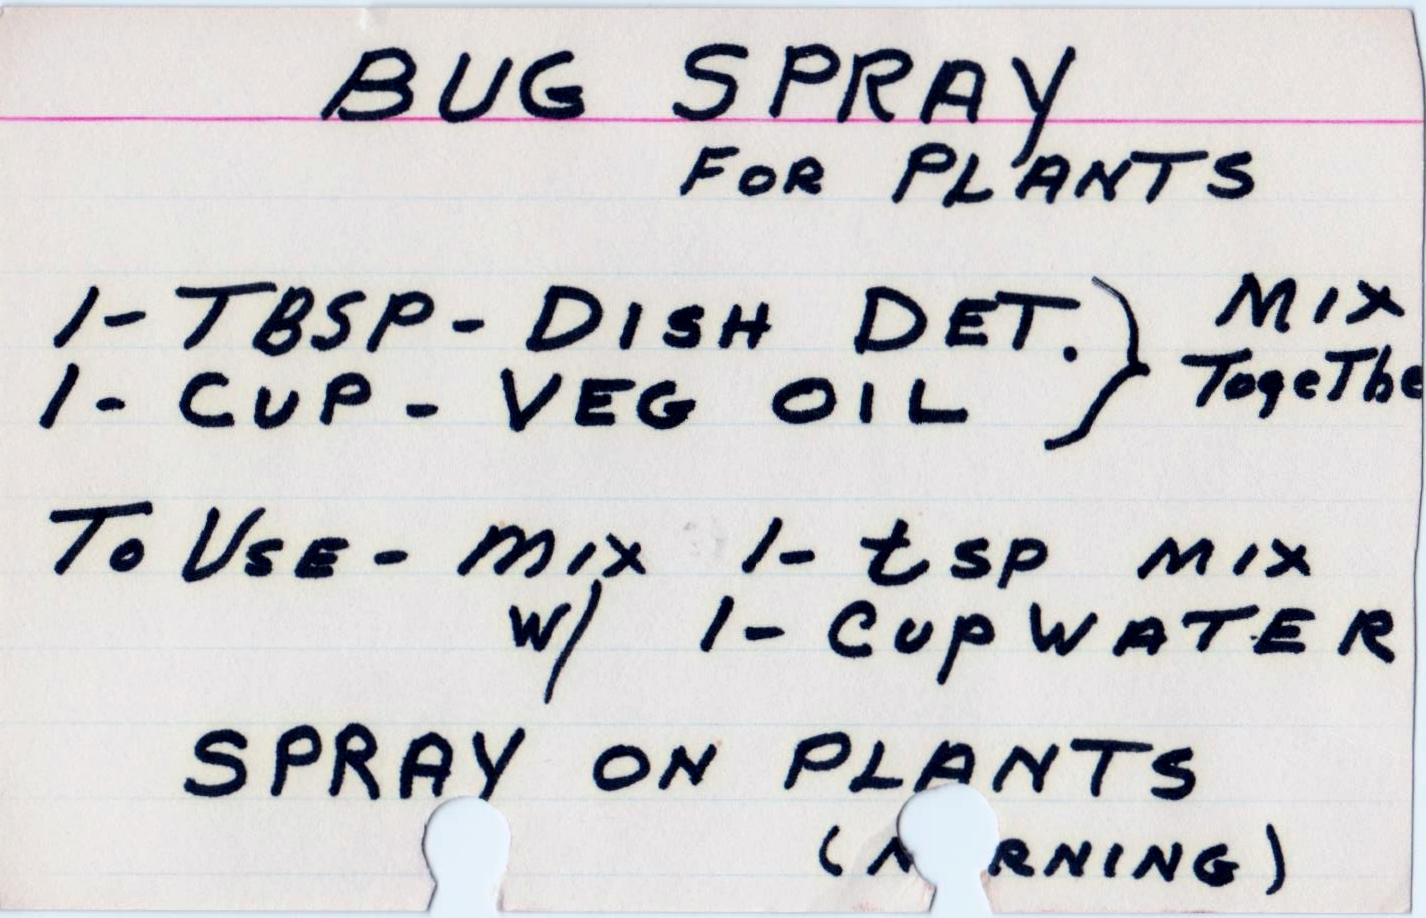 BUG SPRAY
FOR PLANTS
1- TBSP - DISH DET. } MIX
1- CUP - VEG OIL } TogeThe
To USE - MIX 1- tsp MIX
w/ 1- Cup WATER
SPRAY ON PLANTS
(M RNING)